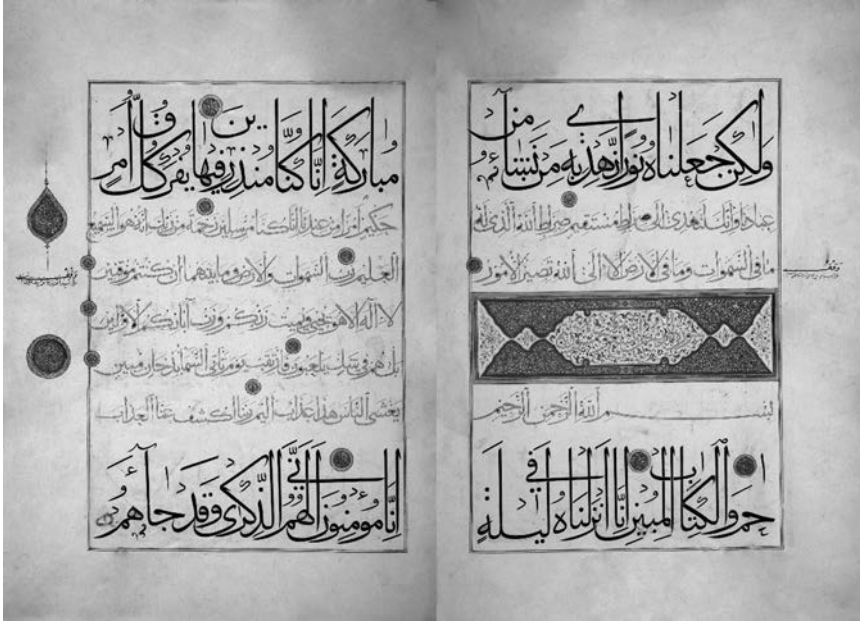 ولكن جعلناه نورا نهدي به من نشاء من
عبادنا وانك لتهدي الى صراط مستقيم صراط الله الذي له
ما في السموات وما في الارض الا الى الله تصير الامور
بسم الله الرحمن الرحيم
حم والكتاب المبين انا انزلناه في ليلة
مباركة انا كنا منذرين فيها يفرق كل امر
حكيم امرا من عندنا انا كنا مرسلين رحمة من ربك انه هو السميع
العليم رب السموات والارض وما بينهما ان كنتم موقنين
لا اله الا هو يحيي ويميت ربكم ورب آبائكم الاولين
بل هم في شك يلعبون فارتقب يوم تأتي السماء بدخان مبين
يغشى الناس هذا عذاب اليم ربنا اكشف عنا العذاب
انا مومنون انى لهم الذكرى وقد جآءهم